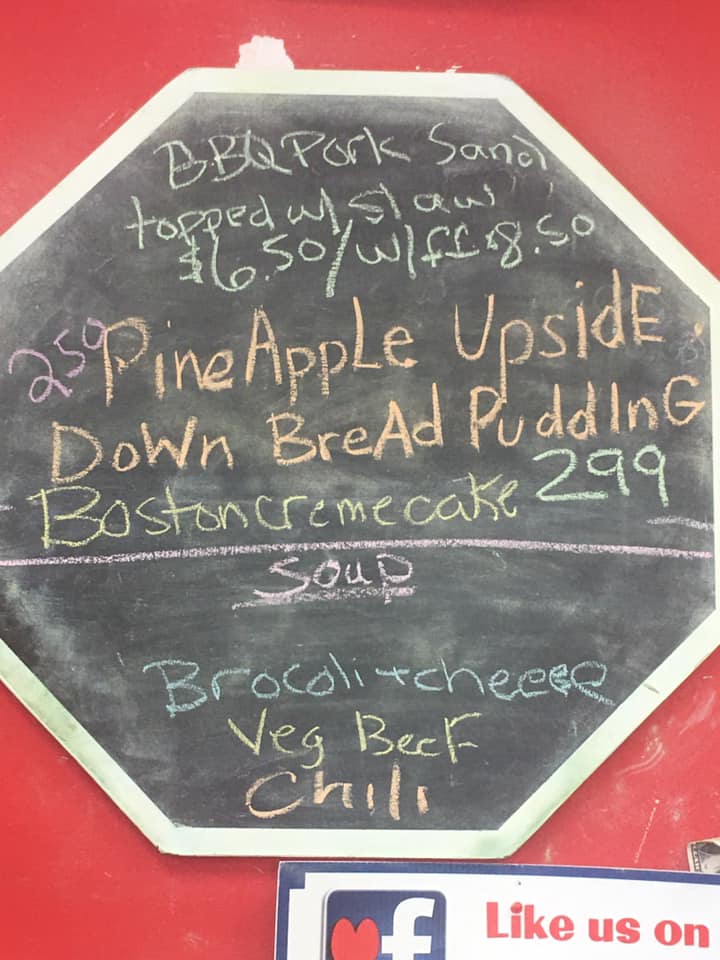 BBQ Pork Sand
topped w/ slaw
$6.50/w/ff 8.50
250 PineAppLe UpsidE
DoWn BreAd PuddInG
Bostoncremecake 299
Soup
Brocoli + cheeee
Veg Beef
Chili
f Like us on